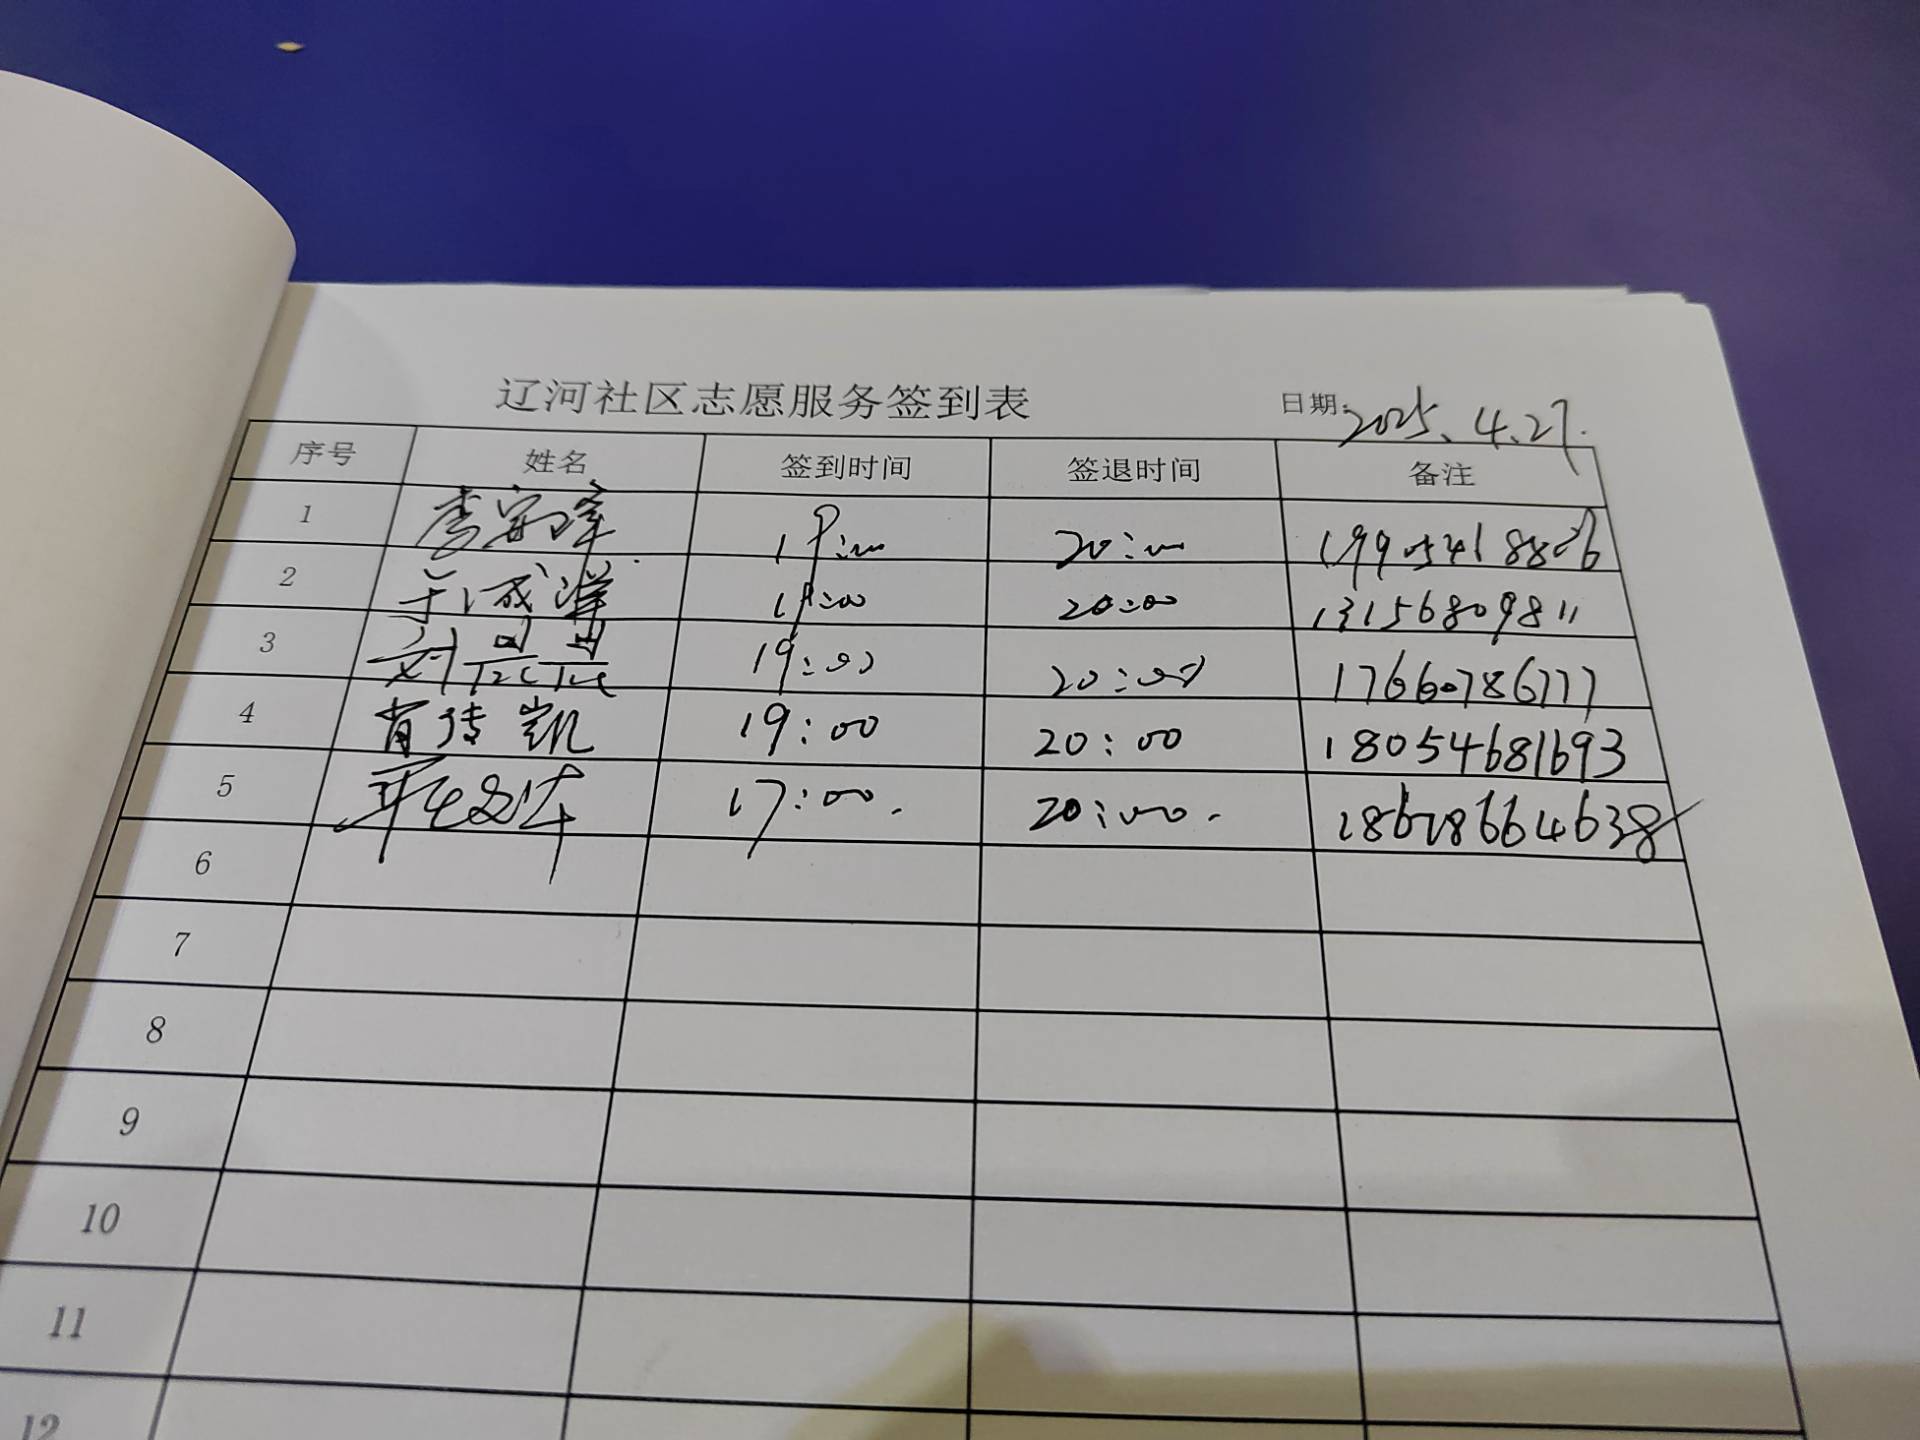 辽河社区志愿服务签到表 日期:2025.4.27.
序号 姓名 签到时间 签退时间 备注
1 李 19:00 20:00
2 于成洋 19:00 20:00 13156809811
3 刘 19:00 20:00 17660786777
4 肖传凯 19:00 20:00 18054681693
5 17:00. 20:00. 18678664638
6
7
8
9
10
11
12